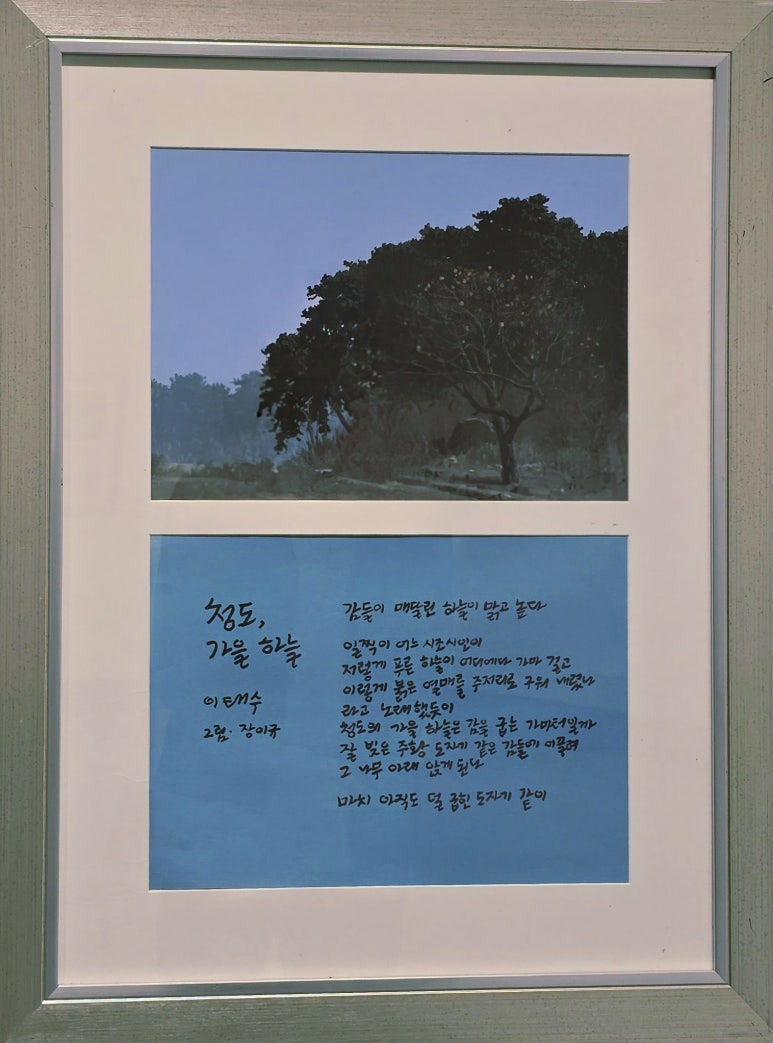 청도,
가을 하늘
이태수
그림·장이규
감들이 매달린 하늘이 맑고 높다
일찍이 어느 시조시인이
저렇게 푸른 하늘이 어디에다 가마 걸고
이렇게 붉은 열매를 주저리로 구워 내렸나
라고 노래했듯이
청도의 가을 하늘은 감을 굽는 가마터일까
잘 빚은 주황 도자기 같은 감들에 이끌려
그 나무 아래 앉게 된다
마치 아직도 덜 굽힌 도자기 같이